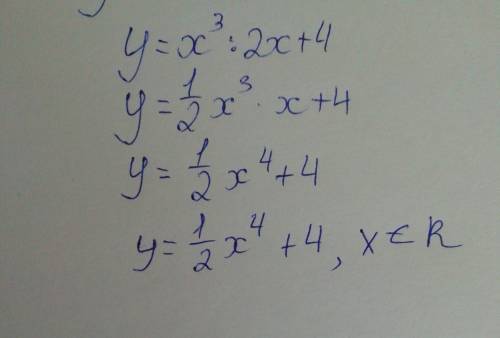 y = x³ : 2x + 4
y = 1/2 x³ · x + 4
y = 1/2 x⁴ + 4
y = 1/2 x⁴ + 4, x ∈ R